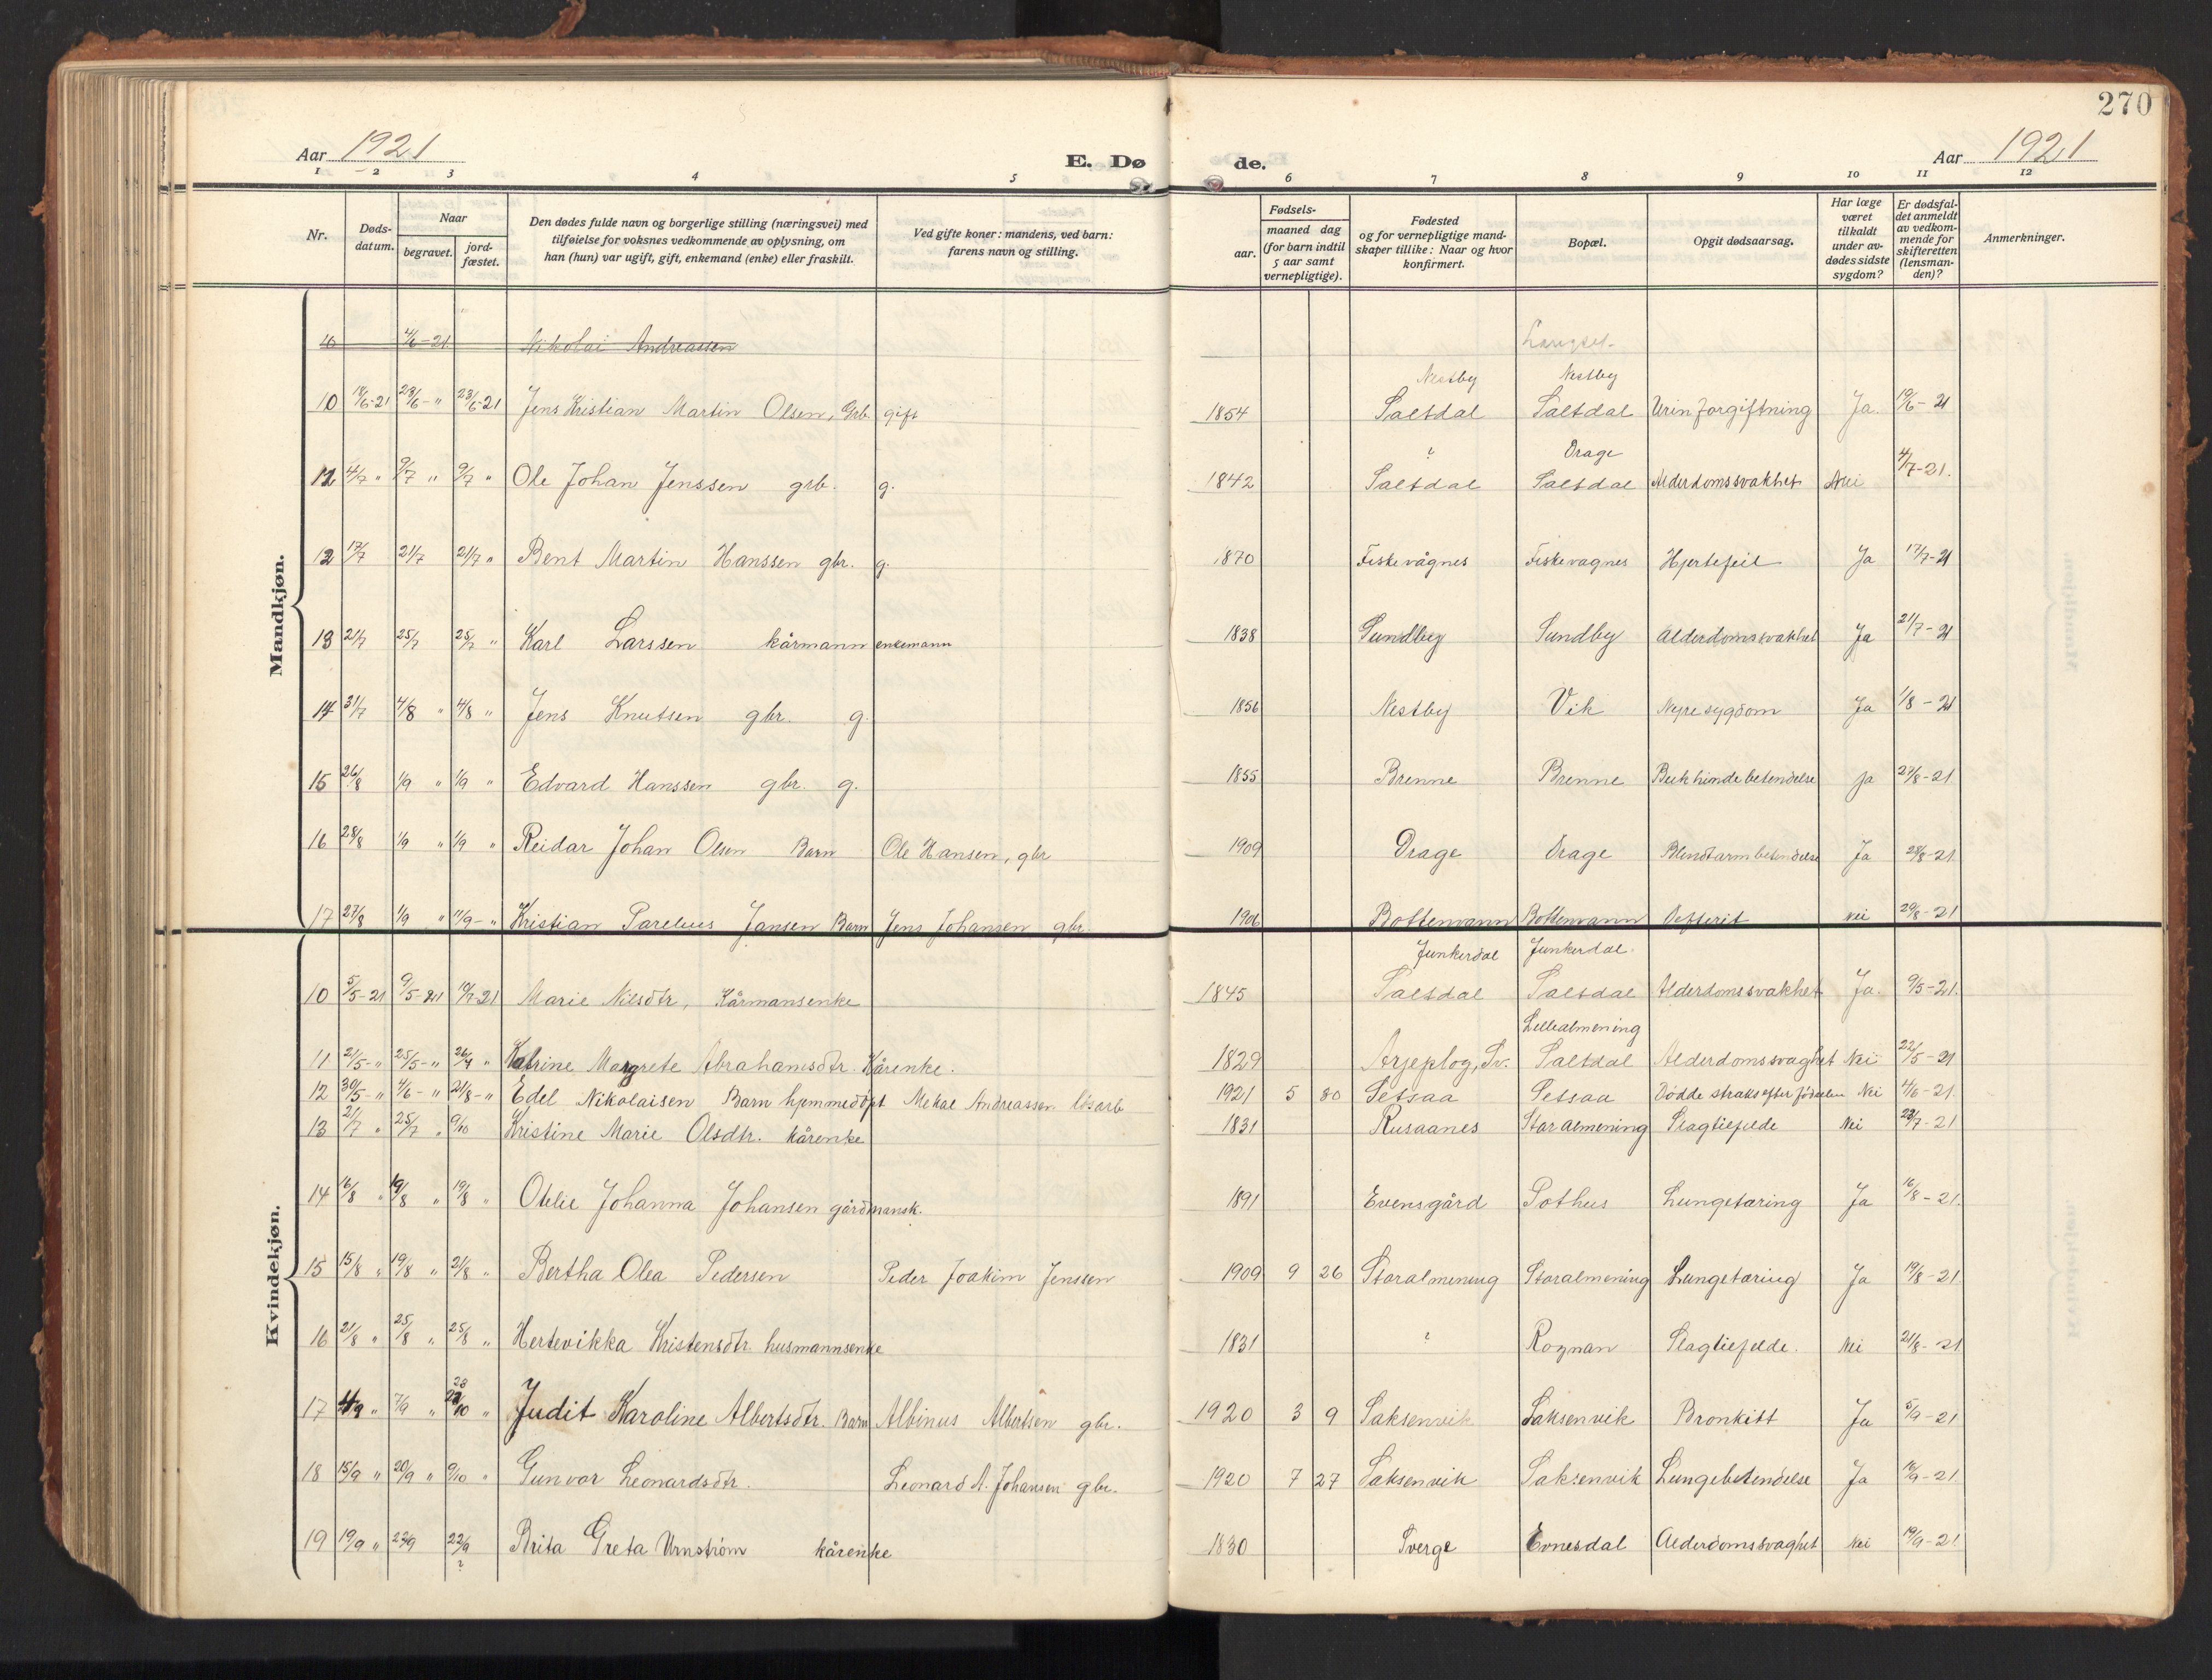 270
Aar 1921
E. Dø
de.
Aar 1921
1 2 3 4 5 6 7 8 9 10 11 12
Nr.
Døds-datum.
Naar
begravet.
jord-fæstet.
Den dødes fulde navn og borgerlige stilling (næringsvei) med
tilføielse for voksnes vedkommende av oplysning, om
han (hun) var ugift, gift, enkemand (enke) eller fraskilt.
Ved gifte koner: mandens, ved barn:
farens navn og stilling.
Fødsels-
aar.
maaned dag
(for barn indtil
5 aar samt
vernepligtige).
Fødested
og for vernepligtige mand-
skaper tillike: Naar og hvor
konfirmert.
Bopæl.
Opgit dødsaarsag.
Har læge
været
tilkaldt
under av-
dødes sidste
sygdom?
Er dødsfal-
det anmeldt
av vedkom-
mende for
skifteretten
(lensman-
den)?
Anmerkninger.
Mandkjøn.
4/6-21 Nikolai Andreassen
Nestby Nestby
10 18/6-21 23/6-" 23/6-21 Jens Kristian Martin Olsen, Grb. gift 1854 Saltdal Saltdal Urinforgiftning Ja. 19/6-21
? Drage
12 4/7 " 9/7 " 9/7 " Ole Johan Jenssen grb. g. 1842 Saltdal Saltdal Alderdomssvakhet Nei 4/7-21.
12 17/7 21/7 21/7 " Bent Martin Hanssen gbr. g. 1870 Fiskevågnes Fiskevagnes Hjertefeil Ja 17/7-21
13 21/7 25/7 25/7 " Karl Larssen kårmann enkemann 1838 Sundby Sundby Alderdomssvakhet Ja 21/7-21
14 31/7 4/8 " 4/8 " Jens Knutsen gbr. g. 1856 Nestby Vik Nyresygdom Ja 1/8-21
15 26/8 1/9 " 1/9 " Edvard Hanssen gbr. g. 1855 Brenne Brenne Bukhindebetendelse Ja 27/8-21
16 28/8 1/9 " 1/9 " Reidar Johan Olsen Barn Ole Hansen, gbr 1909 Drage Drage Blindtarmbetendelse Ja 28/8-21
17 27/8 1/9 " 11/9-" Kristian Parelius Jansen Barn Jens Johansen gbr. 1906 Bottenvann Bottenvann Defterit nei 29/8-21
Kvindekjøn.
Junkerdal Junkerdal.
10 5/5-21 9/5-21 10/7-21 Marie Nilsdtr, Kårmansenke 1845 Saltdal Saltdal Alderdomssvakhet Ja. 9/5-21.
Lillealmening
11 21/5-" 25/5-" 26/9 " Katrine Margrete Abrahamsdtr. Kårenke. 1829 Arjeplog, Sv. Saltdal Alderdomssvaghet Nei 22/5-21
12 30/5-" 4/6-" 21/8-" Edel Nikolaisen Barn hjemmedöpt Mekal Andreassen lösarb 1921 5 30 Setsaa Setsaa Dödde straks efter födselen Nei 4/6-21.
13 21/7 " 25/7 " 9/10 Kristine Marie Olsdtr. kårenke 1831 Rusaanes Storalmening Slagtilfelde Nei 23/7-21
14 16/8 " 19/8 " 19/8 " Otelie Johanna Johansen gårdmansk. 1891 Evensgård Pothus Lungetæring Ja 16/8-21.
15 15/8 " 19/8 " 21/8 " Bertha Olea Pedersen Peder Joakim Jenssen 1909 9 26 Storalmening Storalmening Lungetæring Ja 19/8-21
16 21/8 " 25/8 " 25/8 " Hertevikka Kristensdtr. husmannsenke 1831 ? Rognan Slagtilfelde. Nei 21/8-21
17 4/9 " 7/9 " 23/10 " Judit Karoline Albertsdtr. Barn Albinus Albertsen gbr. 1920 3 9 Saksenvik Saksenvik Bronkitt Ja 5/9-21
18 15/9 " 20/9 " 9/10 " Gunvor Leonardsdtr. Leonard A. Johansen gbr. 1920 7 27 Saksenvik Saksenvik Lungebetendelse Ja 16/9-21.
19 19/9 " 22/9 22/9 Brita Greta Urnström kårenke 1830 Sverge Evnesdal Alderdomssvaghet Nei 19/9-21
?